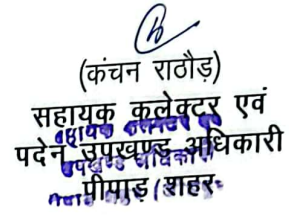 (कंचन राठौड़)
सहायक कलेक्टर एवं
पदेन उपखण्ड अधिकारी
पीपाड़ शहर